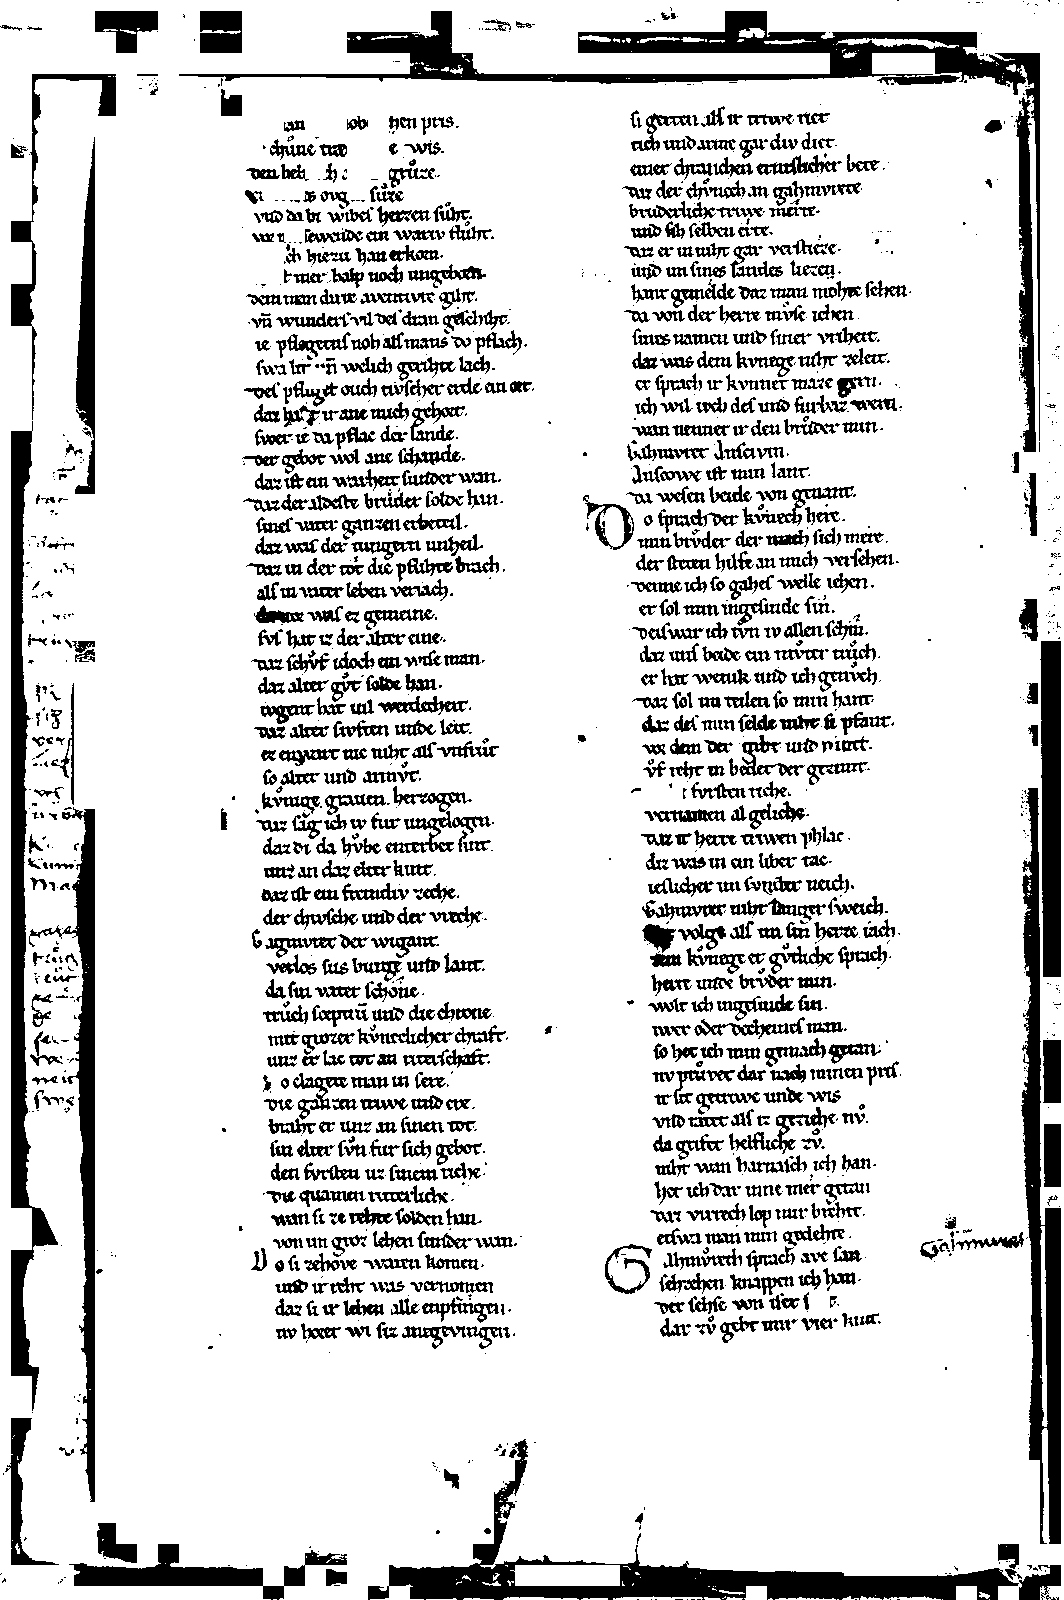 hen pris.
chůne wis.
den helt gruͤze.
oug suͤze
vnd da bi wibes herzen suht.
sewende ein wariv fluht.
ch hiezu han erkorn.
mer halp noch ungeborn.
dem man dirre aventivre giht.
vñ wunders vil des dran geschiht.
ie pflegens noh als mans do pflach.
swa lit welich gerihte lach.
des pfliget ouch tivscher erde ein ort.
daz habt ir ane mich gehort.
swer ie da pflac der lande.
der gebot wol ane schande.
daz ist ein warheit sunder wan.
daz der aldeste brůder solde han.
sines vater ganzen erbeteil.
daz was der iungern unheil.
daz in der tot die pflihte brach.
als in vater leben veriach.
was ez gemeine.
svs hat iz der alter eine.
daz schůf idoch ein wise man.
daz alter gůt solde han.
iugent hat vil werdicheit.
daz alter siuften unde leit.
ez enwart nie niht als vnfruͤt
so alter und armůt.
kvnige. graven. herzogen.
daz sag ich iv fur ungelogen.
daz di da hůbe enterbet sint.
unz an daz elter kint.
daz ist ein fremdiv zeche.
der chvsche und der vreche.
Gagmvret der wigant.
verlos sus burge und lant.
da sin vater schone.
truͦch sceptrū und die chrone
mit grozer kůneclicher chraft.
unz er lac tot an riterschaft.
o clagete man in sere.
die ganzen triwe und ere.
braht er unz an sinen tot.
sin elter sůn fur sich gebot.
den fvrsten uz sinem riche.
die quamen ritterliche.
wan si ze rehte solden han.
von im groz lehen sunder wan.
Do si zehove waren komen.
und ir reht was vernomen
daz si ir lehen alle enpfingen.
nv horet wi siz anegevingen.
si gerten als ir triwe riet
rich und arme gar div diet.
einer chranchen ernstlicher bete.
daz der chvnech an gahmvrete
bruderliche triwe merte.
und sih selben erte.
daz er in niht gar verstieze.
und im sines landes liezen.
hant gemelde daz man mohte sehen.
da von der herre mvse iehen
sines namen und siner vriheit.
daz was dem kvnege niht zeleit.
er sprach ir kvnnet maze gern.
ich wil iveh des und furbaz wern.
wan nennet ir den brůder min.
Gahmvret Anscivin.
Anscowe ist min lant.
da wesen beide von genant.
Do sprach der kůnech here.
min brůder der mach sich mere.
der steten hilfe an mich versehen.
denne ich so gahes welle iehen.
er sol min ingesinde sin.
deiswar ich tůn iv allen schin.
daz uns beide ein můter trůch.
er hat wenik und ich genůch.
daz sol im teilen so min hant.
daz des min selde niht si pfant.
vor dem der gibt und nimt.
ůf reht in beider der gezimt.
fvrsten riche.
vernamen al geliche.
daz ir herre triwen phlac.
diz was in ein liber tac.
ieslicher im svnder neich.
Gahmvret niht langer sweich.
volge als im sin herze iach.
zem kvnege er gůtliche sprach.
herre unde brůder min.
wolt ich ingesinde sin.
iwer oder decheines man.
so het ich min gemach getan.
nv průvet dar nach minen pris.
ir sit getriwe unde wis
vnd ratet als iz geziehe nů.
da grifet helfliche zů.
niht wan harnasch ich han.
het ich dar inne mer getan
daz virrech lop mir brehte.
etswa man min gedehte.
Gahmůrech sprach ave san
sehzehen knappen ich han.
der sehse von iser s
dar zů gebt mir vier kint.
Gahmuret